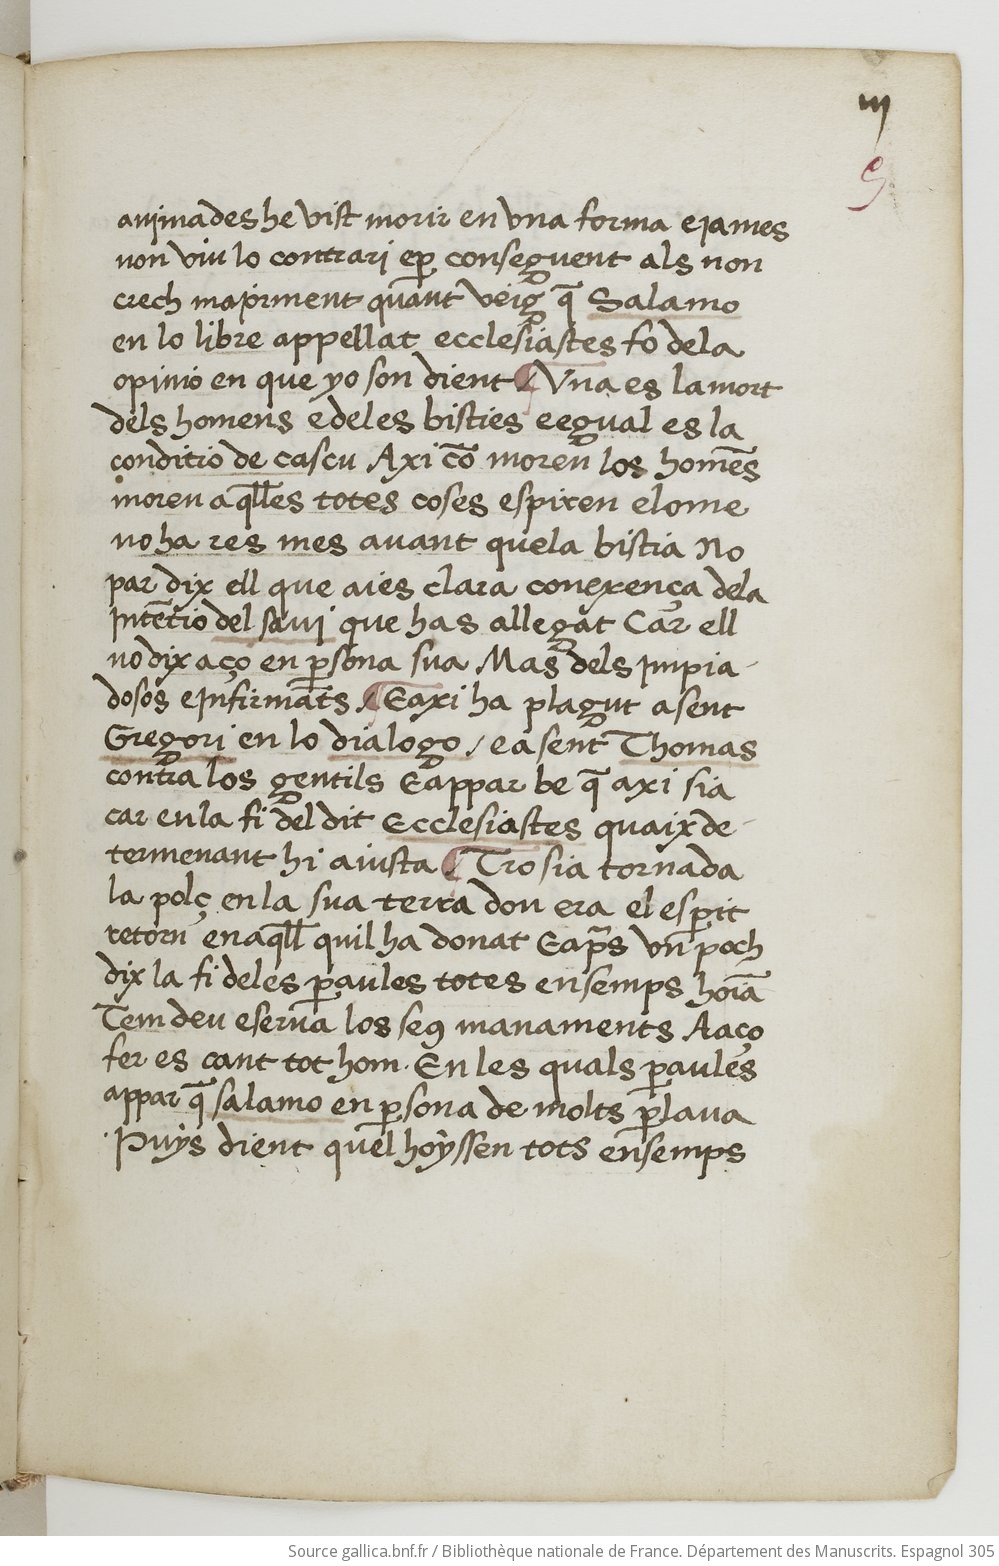 iij
5
animades he vist morir en vna forma e james
non viu lo contrari e ꝑ conseguent als non
crech majorment quant veig q̄ Salamo
en lo libre appellat ecclesiastes fo de la
opinio en que yo son dient / ¶ Vna es la mort
dels homens e de les bisties e egual es la
conditio de cascu Axi cō moren los homēs
moren aq̄lles totes coses espiren e lome
no ha res mes auant que la bistia No
par dix ell que aies clara conexença de la
Intētio del saui que has allegat Car ell
no dix aço en ꝑsona sua Mas dels Impia-
dosos e Infirmāts / ¶ E axi ha plagut a sent
Gregori en lo dialogo / e a sent Thomas
contra los gentils E appar be q̄ axi sia
car en la fi del dit Ecclesiastes quaix de-
termenant hi aiusta / ¶ Tro sia tornada
la polç en la sua terra don era el esꝑit
retorn en aq̄ll quil ha donat E ap̄s vn poch
dix la fi de les ꝑaules totes ensemps hoiā
Tem deu e serua los seꝯ manaments A aço
fer es cant tot hom. En les quals ꝑaules
appar q̄ salamo en ꝑsona de molts ꝑlaua
Puys dient quel hoyssen tots ensemps
Source gallica.bnf.fr / Bibliothèque nationale de France. Département des Manuscrits. Espagnol 305